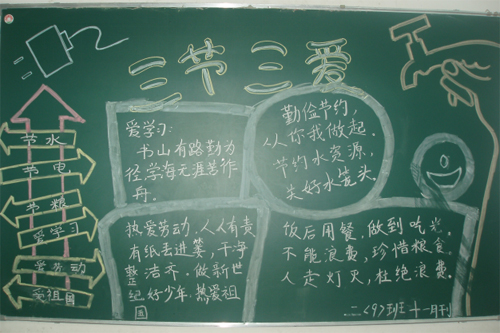 三节三爱
节水
节电
节粮
爱学习
爱劳动
爱祖国
爱学习:
书山有路勤为
径学海无涯苦作
舟.
勤俭节约,
从你我做起.
节约水资源,
关好水笼头.
热爱劳动,人人有责
有纸丢进篓,干净
整洁齐,做新世
纪好少年.热爱祖
国
饭后用餐,做到吃光,
不能浪费,珍惜粮食,
人走灯灭,杜绝浪费.
二〈9〉班 十一月刊